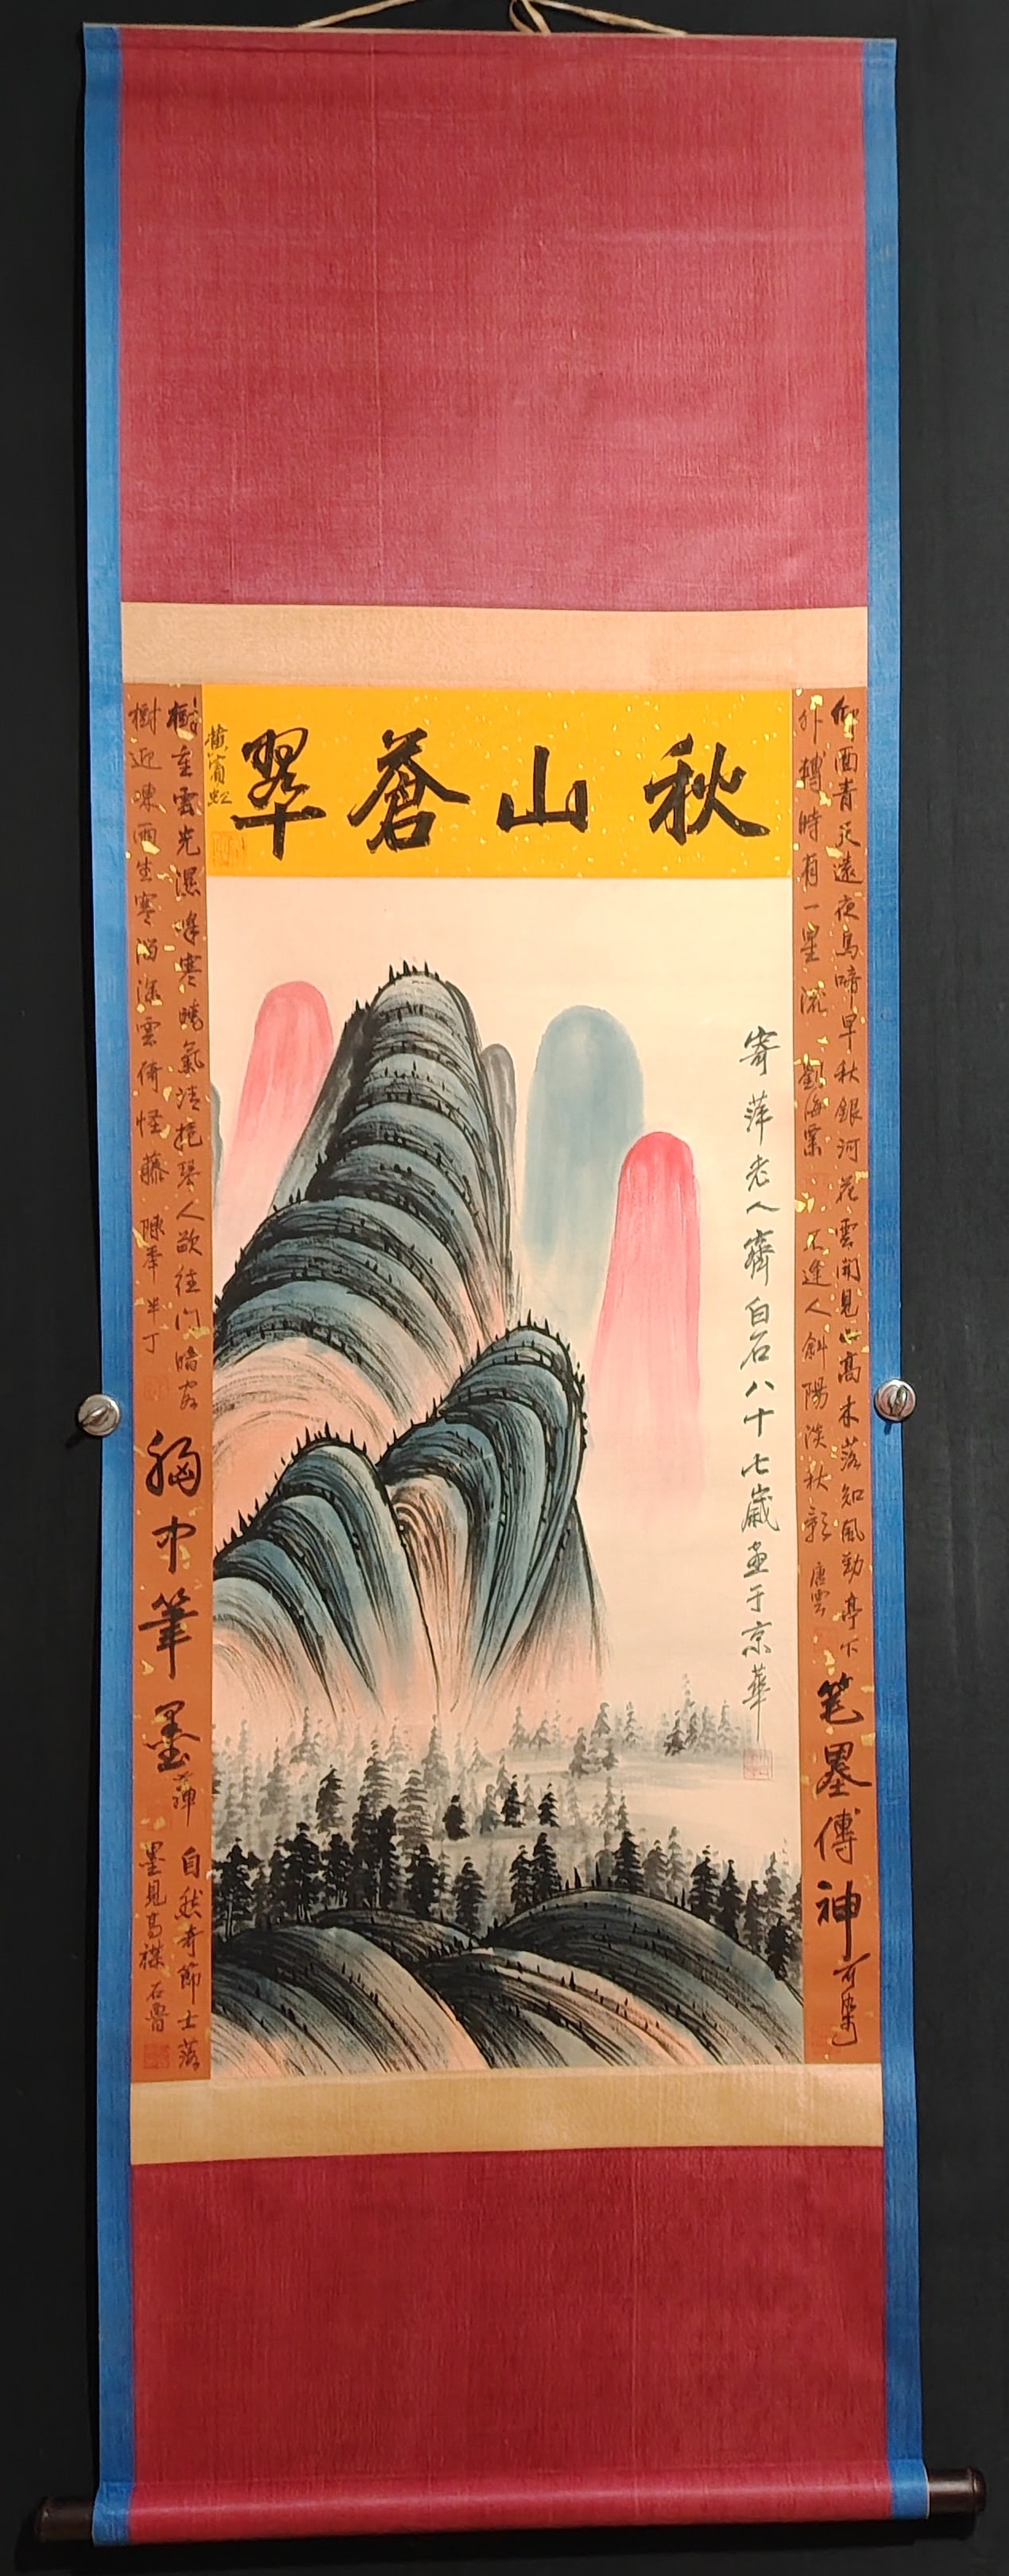 秋山蒼翠
黃賓虹
寄萍老人齊白石八十七歲畫于京華
青天遠夜烏啼早秋銀河花
外轉時有一星流 劉海粟
雲開見山高木落知風勁亭下
不逢人斜陽淡秋影 唐雲
笔墨傳神
樹重雲光濕峰寒曉氣清抱琴人欲往門暗
樹迎凍雨生寒溜深雲倚怪藤 陳年半丁
胸中筆墨
自然奇節士落
墨見高襟 石魯